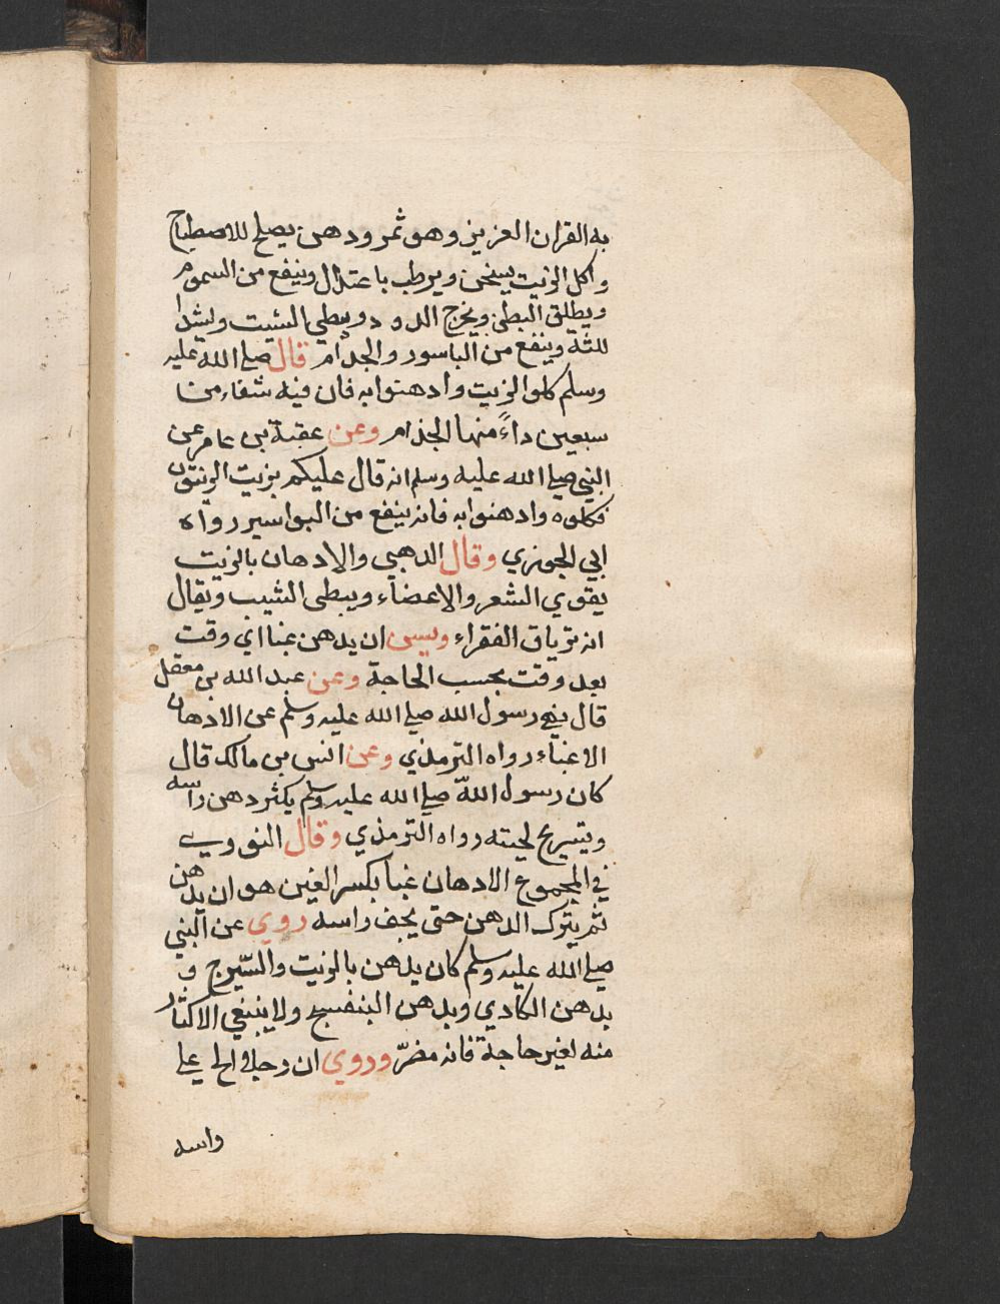 به القران العزيز وهو ثمر ودهن يصلح للاصطباح
واكل الزيت يسخن ويرطب باعتدال وينفع من السموم
ويطلق البطن ويخرج الدود ويبطي الشيب ويشد ا
للثة وينفع من الباسور والجذام قال صلى الله عليه
وسلم كلوا الزيت وادهنوا به فان فيه شفاء من
سبعين داءً منها الجذام وعن عقبة بن عامر عن
النبي صلى الله عليه وسلم انه قال عليكم بزيت الزيتون
فكلوه وادهنوا به فانه ينفع من البواسير رواه
ابي الجوزي وقال الذهبي والادهان بالزيت
يقوي الشعر والاعضاء ويبطى الشيب ويقال
انه ترياق الفقراء ويسن ان يدهن غبا اي وقت
بعد وقت بحسب الحاجة وعن عبد الله بن مغفل
قال نهى رسول الله صلى الله عليه وسلم عن الادهان
الا غباء رواه الترمذي وعن انس بن مالك قال
كان رسول اللهّ صلى الله عليه وسلم يكثر دهن راسه
وتسريح لحيته رواه الترمذي وقال النووي
في المجموع الادهان غباً بكسر الغين هو ان يدهن
ثم يترك الدهن حتى يجف راسه روي عن النبي
صلى الله عليه وسلم كان يدهن بالزيت والسّيرج و
بدهن الكادي وبدهن البنفسج ولا ينبغي الاكثار
منه لغير حاجة فانه مضرّ وروي ان رجلا الح على
راسه